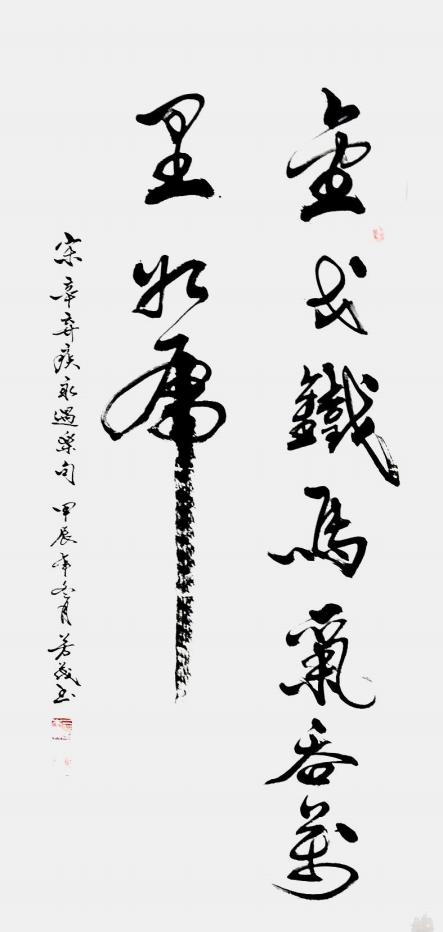 金戈鐵馬氣吞萬
里如虎
宋辛弃疾永遇樂句 甲辰年冬月 芳茂书